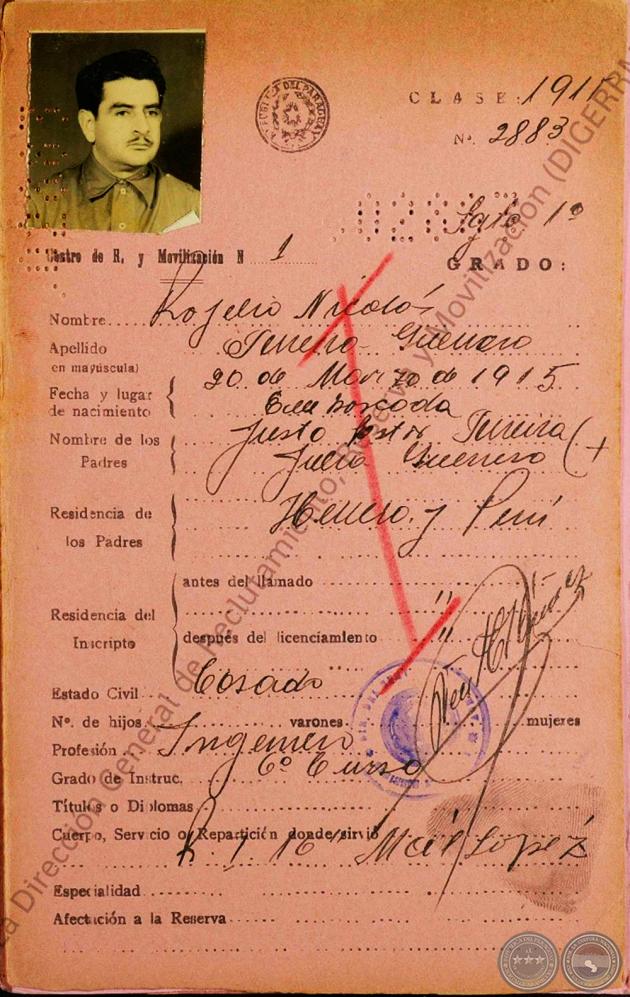 REPUBLICA DEL PARAGUAY
CLASE: 1915
Nº. 2883
Sgto 1º
GRADO:
Centro de R. y Movilización N 1
Nombre Rogelio Nicolás
Apellido
en mayúscula)
Fecha y lugar 20 de Marzo de 1915
de nacimiento Emboscada
Nombre de los Justo Pereira
Padres Julia Guerrero (+
Residencia de Herrera y Perú
los Padres
antes del llamado
Residencia del "
Inscripto después del licenciamiento "
Estado Civil Casado
Nº. de hijos varones mujeres
Profesión Ingeniero
Grado de Instruc. 6º Curso
Títulos o Diplomas
Cuerpo, Servicio o Repartición donde sirvió
R. I. 16 "Mcal López
Especialidad
Afectación a la Reserva
La Dirección General de Reclutamiento, Reserva y Movilización (DIGERRMOV